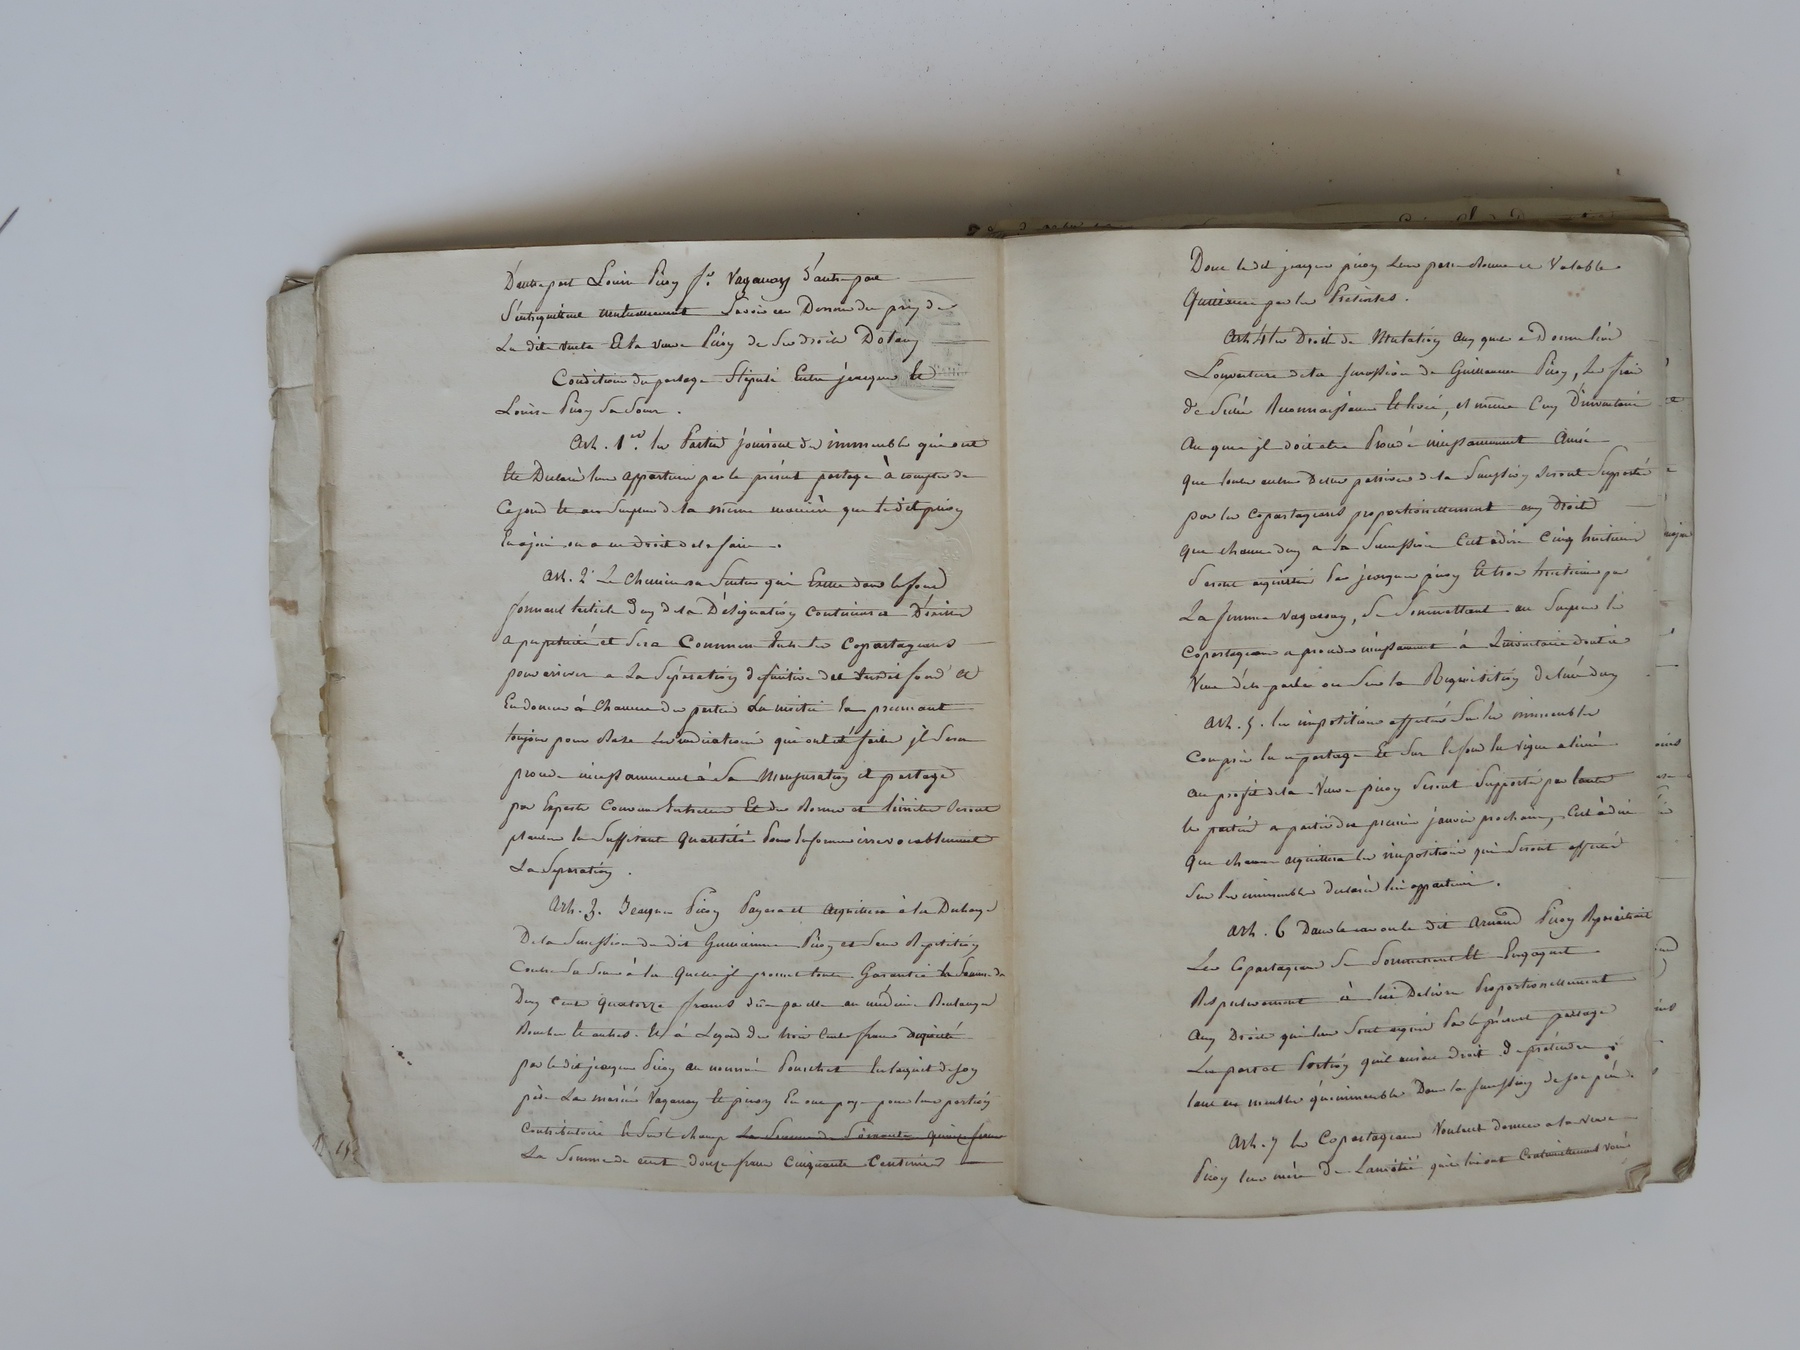 D'autre part Louise Piroy fe. Vaganay d'autre part
S'entrequittent mutuellement Savoir ces Derniers du prix de
La dite vente Et la veuve Piroy de Ses droits Dotaux
Conditions du partage Stipulé Entre jacques Et
Louise Piroy Sa Soeur .
Art. 1er. les Parties jouiront des immeubles qui ont
Ete Declaré leur appartenir par le présent partage à compter de
Ce jour Et au Surplus de la meme manière que le dit piroy
En a joui ou a eu droit de le faire .
Art. 2 Le Chemin ou Sentier qui Existe dans le fond
formant l'article Deux de la Désignation Continuera D'exister
a perpétuité et Sera Commun Entre les Copartageans
pour arriver a La Séparation définitive du Susdit fond Et
En donner à Chacune des parties La moitié En prennant
toujour pour Base Les indications qui ont été faites jl Sera
procédé incessamment à Sa Mensuration et partage
par Experts Convenus Entr'eux Et des Bornes et limites Seront
plantées En Suffisante Quantité Pour En former irrevocablement
La Separation .
Art. 3. Jacques Piroy Payera et Acquittera à la Decharge
De la Succession du dit Guillaume Piroy et Sans Repetition
Contre Sa Soeur à la quelle jl promet toute Garantie La Somme de
Deux Cent Quatorze francs düe par elle au médecin Boulanger
Boucher Et autres. Et à L'egard des trois Cents francs acquitté
par le dit jacques Piroy au nommé Ponchet En l'acquit de Son
père La mariée Vaganay Et piroy En ont payé pour leur portion
Contributoire Et Sur le champ La Somme de Soixante quinze francs
La Somme de cent douze francs Cinquante Centimes
Dont le dit jacques piroy leur passe Bonne et Valable
Quittance par les Présentes .
Art. 4 les Droits de Mutation aux quels a Donné lieu
L'ouverture de la Succession de Guillaume Piroy, les frais
de Scélés Reconnaissance Et levée, et même Ceux D'inventaire
Au quel jl doit etre Procédé incessamment Ainsi
Que toutes autres Dettes passives de la Succession Seront Supportés
par les Copartageans proportionellement aux Droits
Que chacun d'eux a La Succession C'est a dire Cinq huitiemes
Seront acquittés Par jacques piroy Et trois huitiemes par
La femme Vaganay, Se Soumettant au Surplus les
Copartageans a procéder incessamment à L'inventaire dont il
Vient d'etre parlé ou Sur la Requisition de l'un d'eux
Art. 5. les impositions affectées Sur les immeubles
Compris En ce partage Et Sur le fond En Vigne aliéné
au profit de la Veuve piroy Seront Supporté par toutes
les parties a partir du premier janvier prochain, C'est à dire
Que chacun acquittera les impositions qui Seront assises
Sur les immeubles declarés lui appartenir .
Art. 6 Dans le cas ou le dit Arnaud Piroy Reparaitrait
Les Copartageans Se Soumettent Et Engagent
Respectivement à lui Delivrer Proportionellement
Aux Droits qui leur Sont acquis Par le présent partage
Les part et Portion qu'il aurait droit de prétendre
tant en meubles qu'immeubles Dans la Succession de Son père.
Art. 7 les Copartageans Voulant donner a la veuve
Piroy leur mère De L'amitié qu'ils lui ont Continuellement Voué